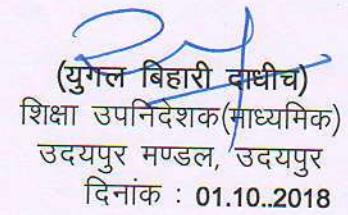 (युगल बिहारी दाधीच)
शिक्षा उपनिदेशक(माध्यमिक)
उदयपुर मण्डल, उदयपुर
दिनांक : 01.10..2018